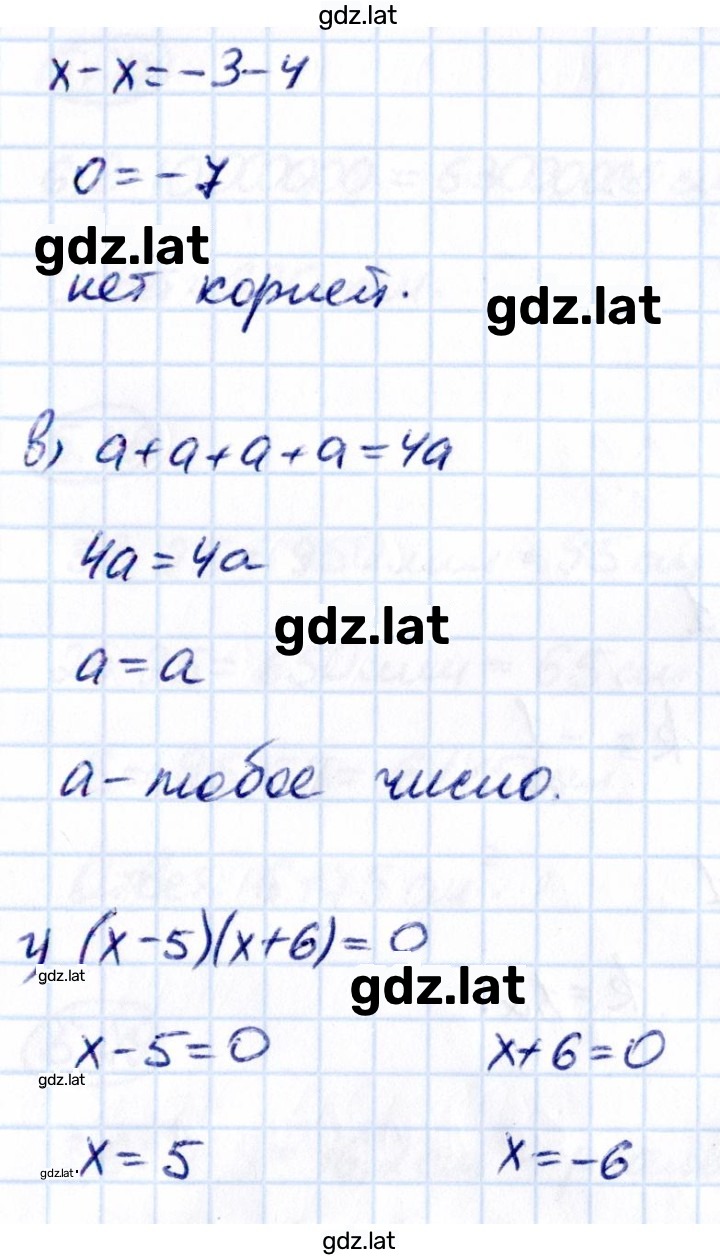 gdz.lat
x - x = -3 - 4
0 = -7
gdz.lat
нет корней.
gdz.lat
в) a + a + a + a = 4a
4a = 4a
gdz.lat
a = a
a - любое число.
г) (x - 5)(x + 6) = 0
gdz.lat
gdz.lat
x - 5 = 0 x + 6 = 0
gdz.lat
x = 5 x = -6
gdz.lat
gdz.lat